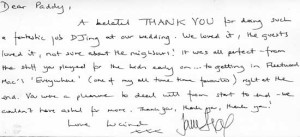 Dear Paddy,
A belated THANK YOU for doing such
a fantastic job DJing at our wedding. We loved it, the guests
loved it, not sure about the neighbours! It was all perfect - from
the stuff you played for the kids early on - to getting in Fleetwood
Mac's 'Everywhere' (one of my all time favourites) right at the
end. You were a pleasure to deal with from start to end - we
couldn't have asked for more. Thank you, thank you, thank you!
Love Lucinda
xxx